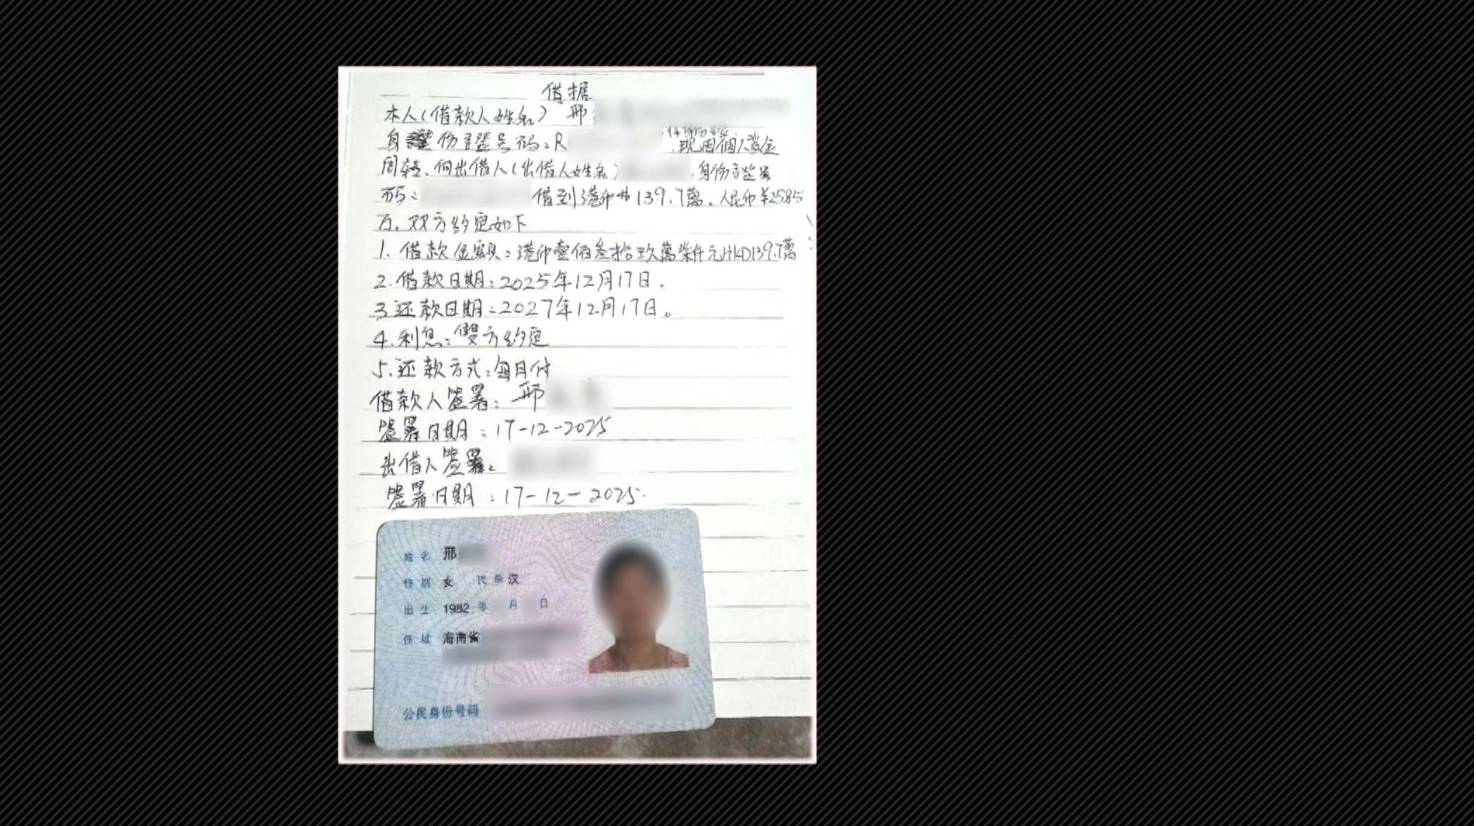 借据
本人(借款人姓名) 邢
身份證号码:R
现因個人资金
周转、向出借人(出借人姓名) 、身份证号
码: 借到港币 139.7萬、人民币¥25.85
万、双方约定如下
1、借款金额:港币壹佰叁拾玖萬柒仟元HKD139.7萬
2.借款日期:2025年12月17日.
3.还款日期:2027年12月17日。
4.利息:雙方约定
5.还款方式:每月付
借款人签署:邢
签署日期:17-12-2025
出借人签署:
签署日期:17-12-2025.
姓名 邢
性别 女 民族 汉
出生 1982 年 月 日
住址 海南省
公民身份号码